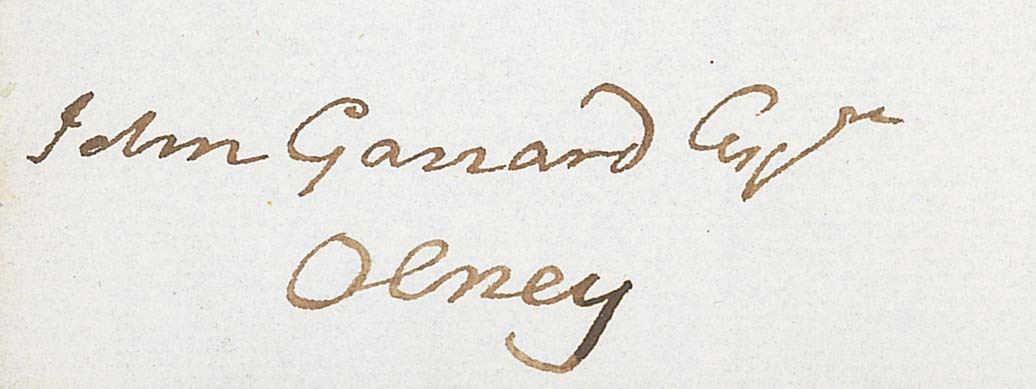 John Garrard Esqre
Olney